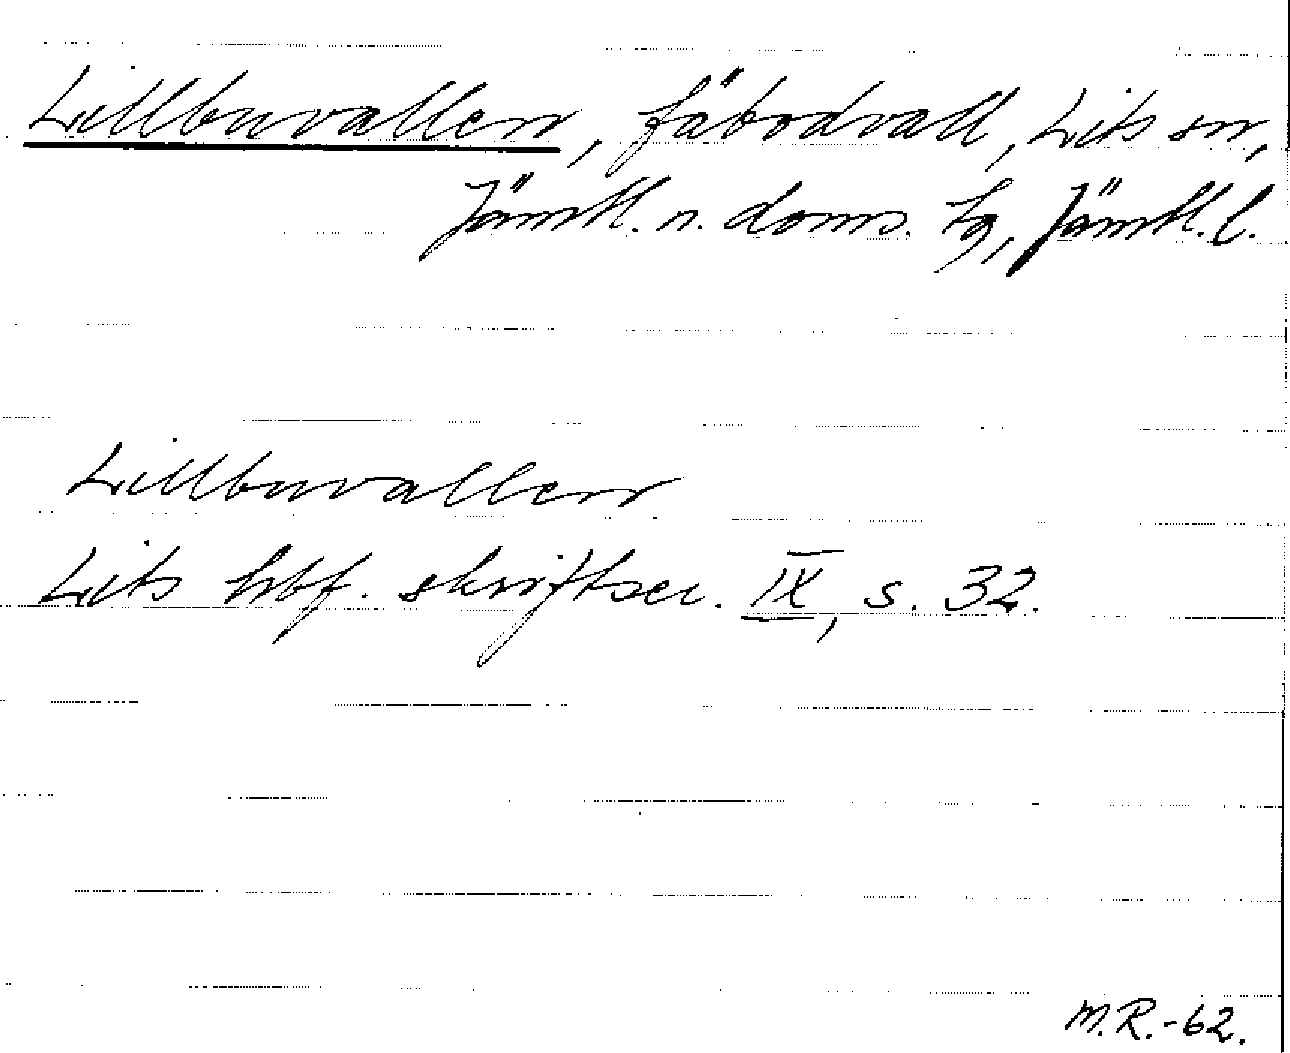 Lillbuvallen, fäbodvall, Lits sn,
Jämtl. n. doms. tg, Jämtl. l.
Lillbuvallen
Lits hbf. skriftser. IX, s. 32.
M.R.-62.